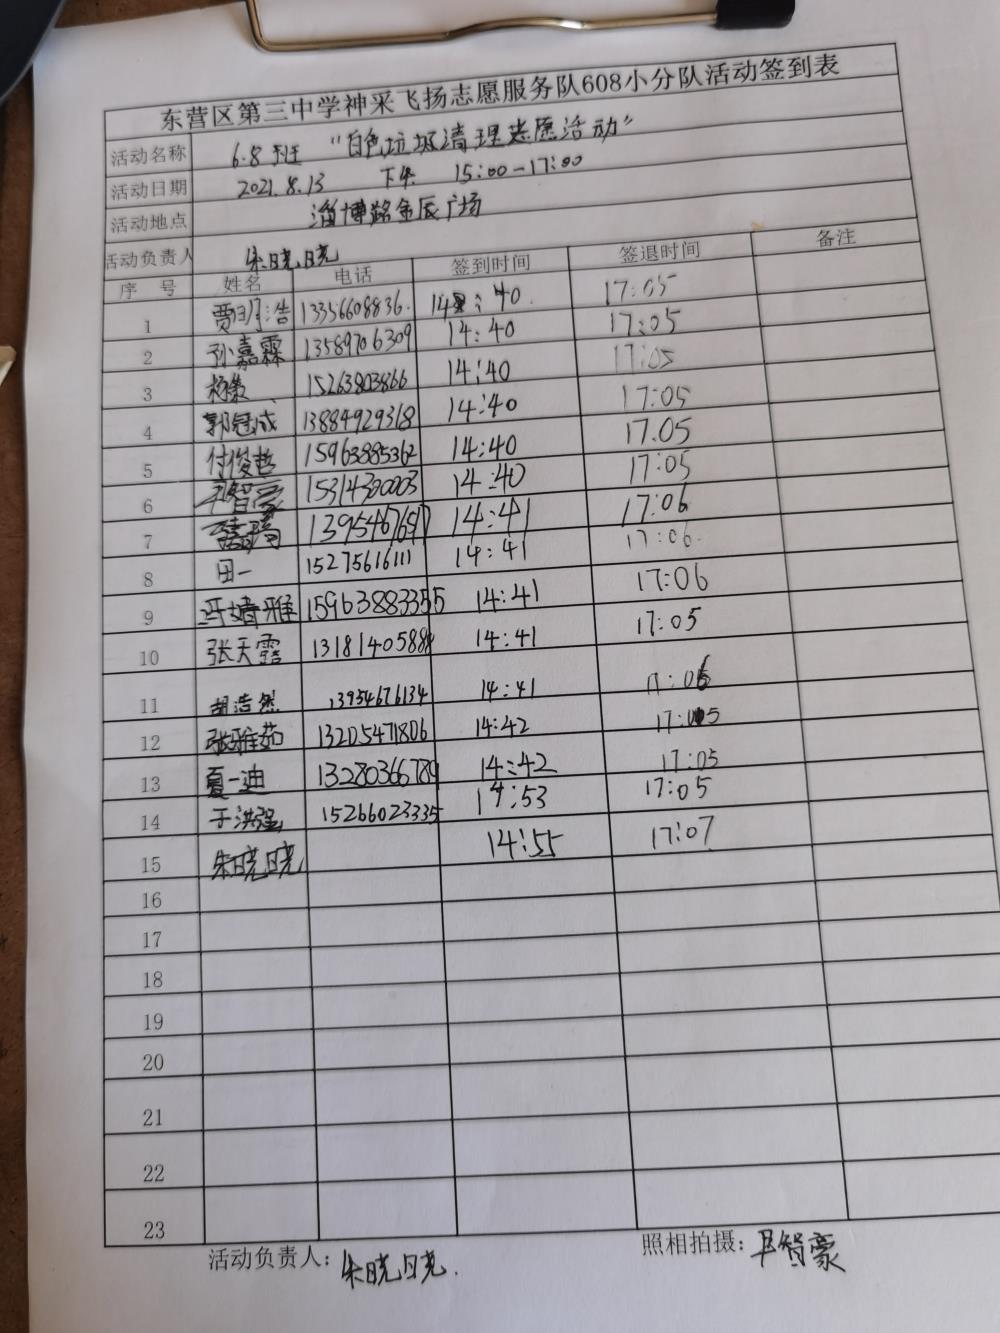 东营区第三中学神采飞扬志愿服务队608小分队活动签到表
活动名称 6.8班 "白色垃圾清理志愿活动"
活动日期 2021.8.13 下午 15:00-17:00
活动地点 淄博路金辰广场
活动负责人 朱晓晓
序 号 姓名 电话 签到时间 签退时间 备注
1 贾明浩 13356608836. 14:40. 17:05
2 孙嘉霖 13589706309 14:40 17:05
3 15263803866 14:40 17:05
4 郭冠成 13884929318 14:40 17:05
5 付俊哲 15963885362 14:40 17.05
6 智豪 15314300003 14:40 17:05
7 14:41 17:06
8 田一 15275616111 14:41 17:06.
9 冯婧雅 15963883355 14:41 17:06
10 张天露 14:41 17:05
11 胡浩然 13954676134 14:41 17:06
12 张雅茹 13205471806 14:42 17:05
13 夏一迪 13280366789 14:42 17:05
14 于洪强 15266023335 14:53 17:05
15 朱晓晓 14:55 17:07
16
17
18
19
20
21
22
23
活动负责人: 朱晓晓. 照相拍摄: 智豪